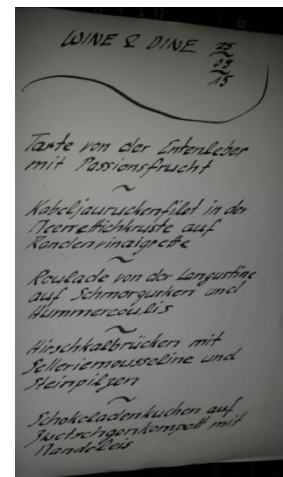 WINE & DINE 25
09
15
Tarte von der Entenleber
mit Passionsfrucht
~
Kabeljaurückenfilet in der
Meerrettichkruste auf
Randenvinaigrette
~
Roulade von der Langustine
auf Schmorgurken und
Hummercoulis
~
Hirschkalbrücken mit
Selleriemousseline und
Steinpilzen
~
Schokoladenkuchen auf
Zwetschgenkompott mit
Mandeleis